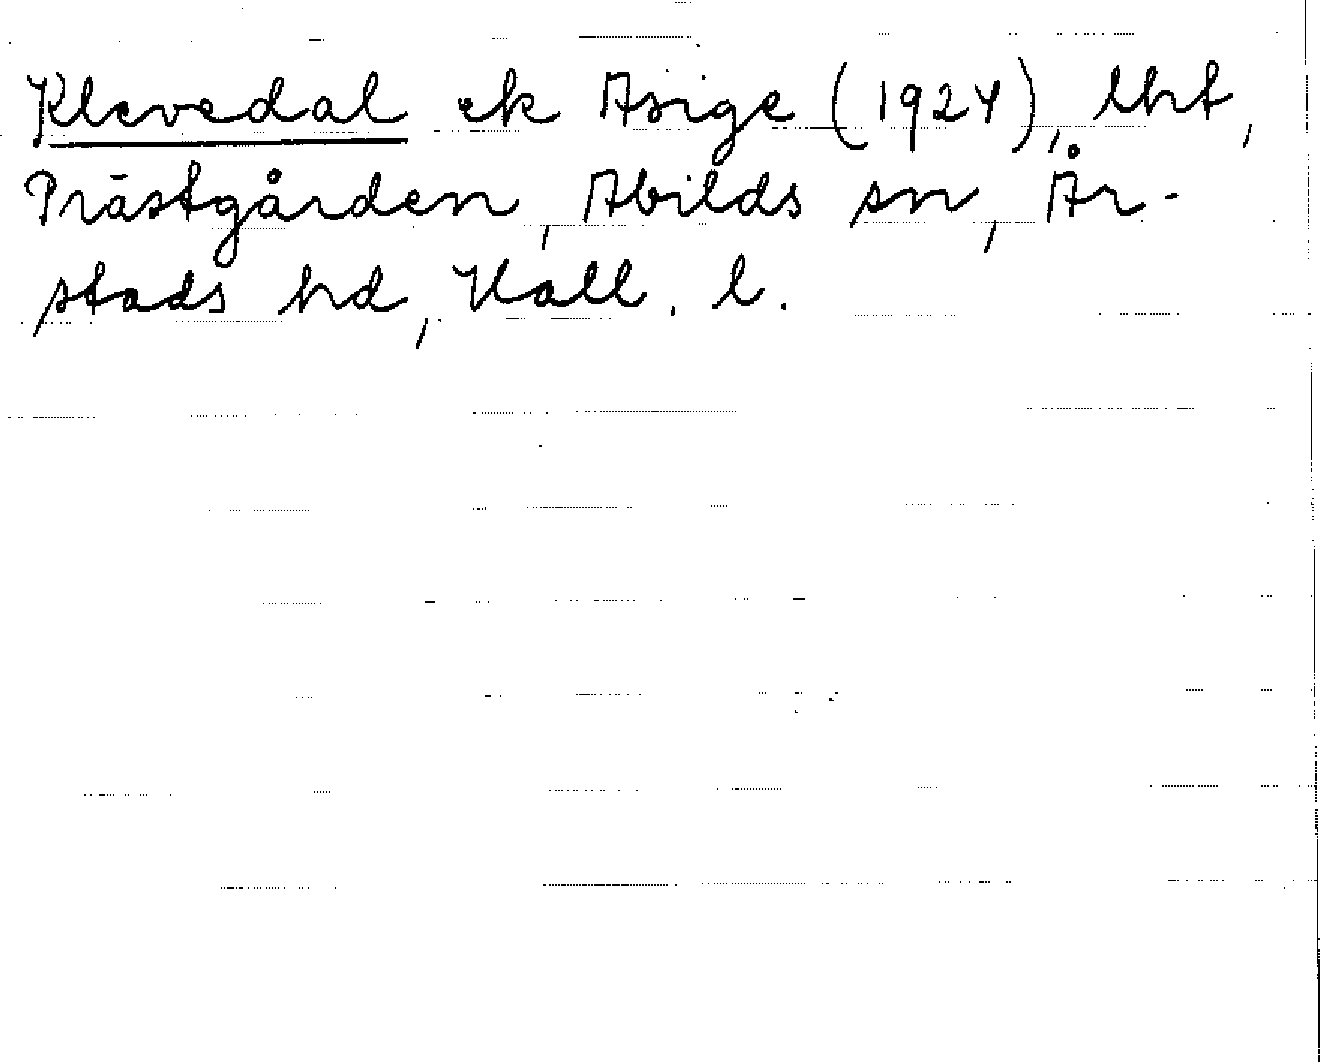 Klevedal ek Asige (1924), lht,
Prästgården, Abilds sn, År-
stads hd, Hall. l.